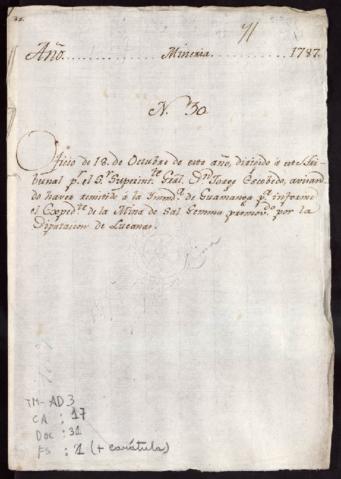 Año. Mineria. 1787.
N. 30
Oficio de 18. de Octubre de este año, dirigido à este Tri-
bunal pr. el Sr. Superinte. Gral. Dn. Jorge Escobedo, avisan-
do haver remitido à la Intendª. de Guamanga pª. informe
el Expedte. de la Mina de Sal Gemma promovdo. por la
Diputacion de Lucanas.
TM-AD3
CA : 17
Doc : 31
Fs : 1 (+ carátula)